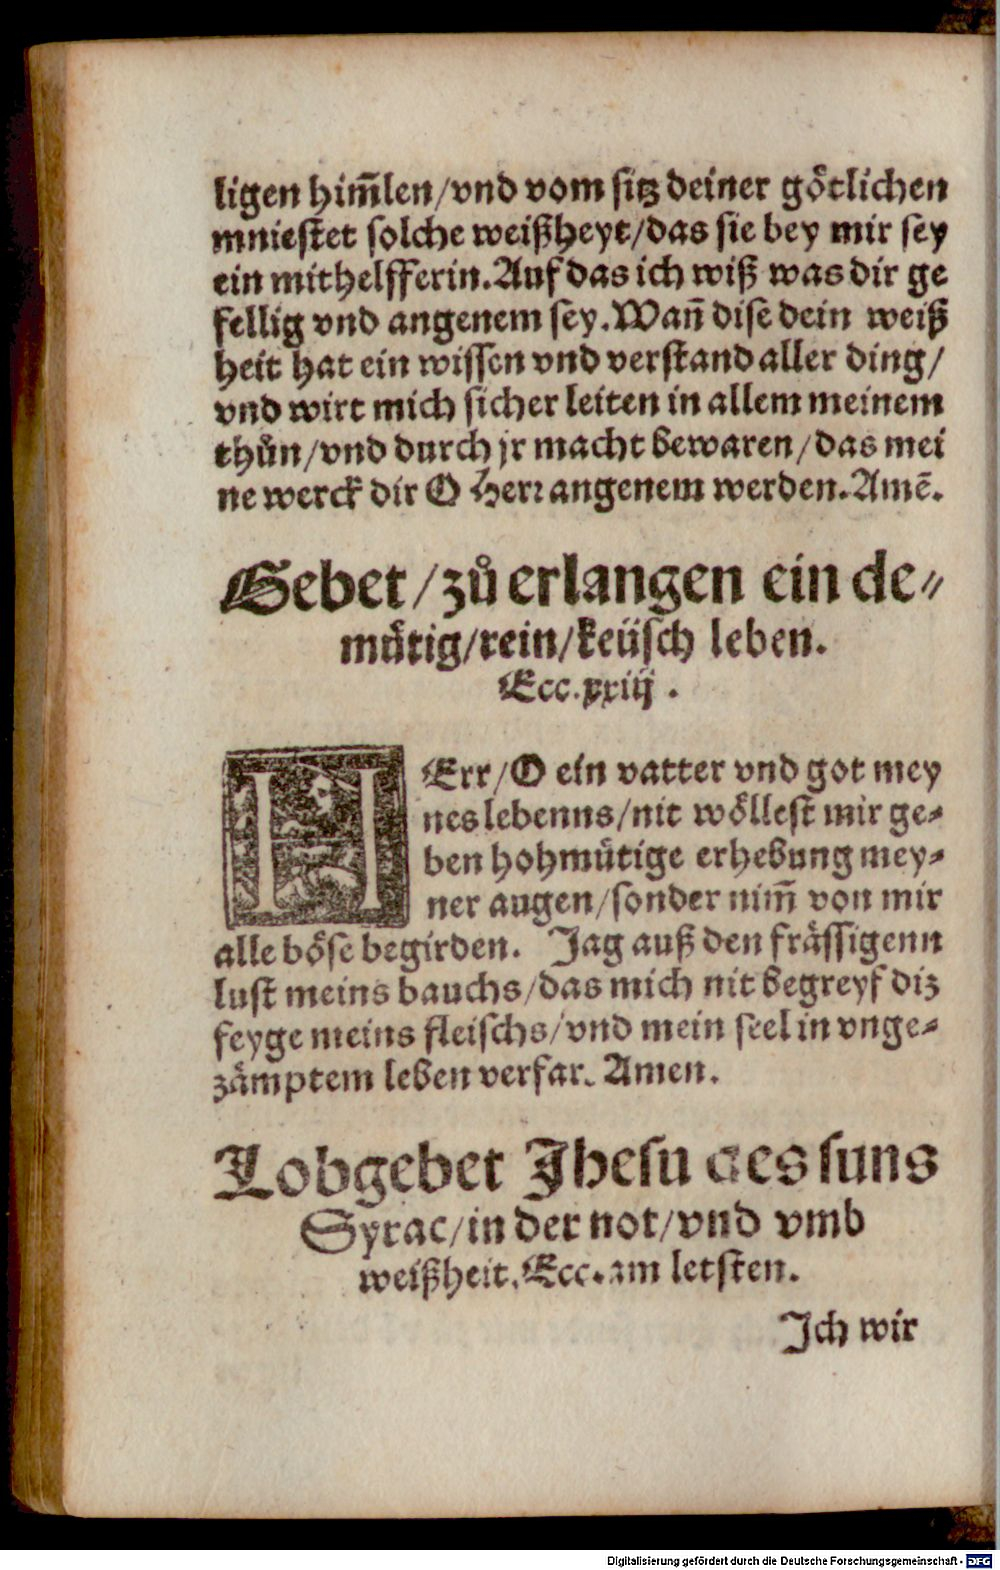 ligen him̃len/vnd vom sitz deiner götlichen
mniestet solche weißheyt/das sie bey mir sey
ein mithelfferin.Auf das ich wiß was dir ge
fellig vnd angenem sey.Wañ dise dein weiß
heit hat ein wissen vnd verstand aller ding/
vnd wirt mich sicher leiten in allem meinem
thůn/vnd durch jr macht bewaren/das mei
ne werck dir O Herr angenem werden.Amē.
Gebet/zů erlangen ein de⸗
mütig/rein/keüsch leben.
Ecc.xxiij.
HErr/O ein vatter vnd got mey
nes lebenns/nit wöllest mir ge⸗
ben hohmütige erhebung mey⸗
ner augen/sonder nim̃ von mir
alle böse begirden. Jag auß den frässigenn
lust meins bauchs/das mich nit begreyf diz
feyge meins fleischs/vnd mein seel in vnge⸗
zämptem leben verfar. Amen.
Lobgebet Jhesu des suns
Syrac/in der not/vnd vmb
weißheit.Ecc.am letsten.
Jch wir
Digitalisierung gefördert durch die Deutsche Forschungsgemeinschaft - DFG